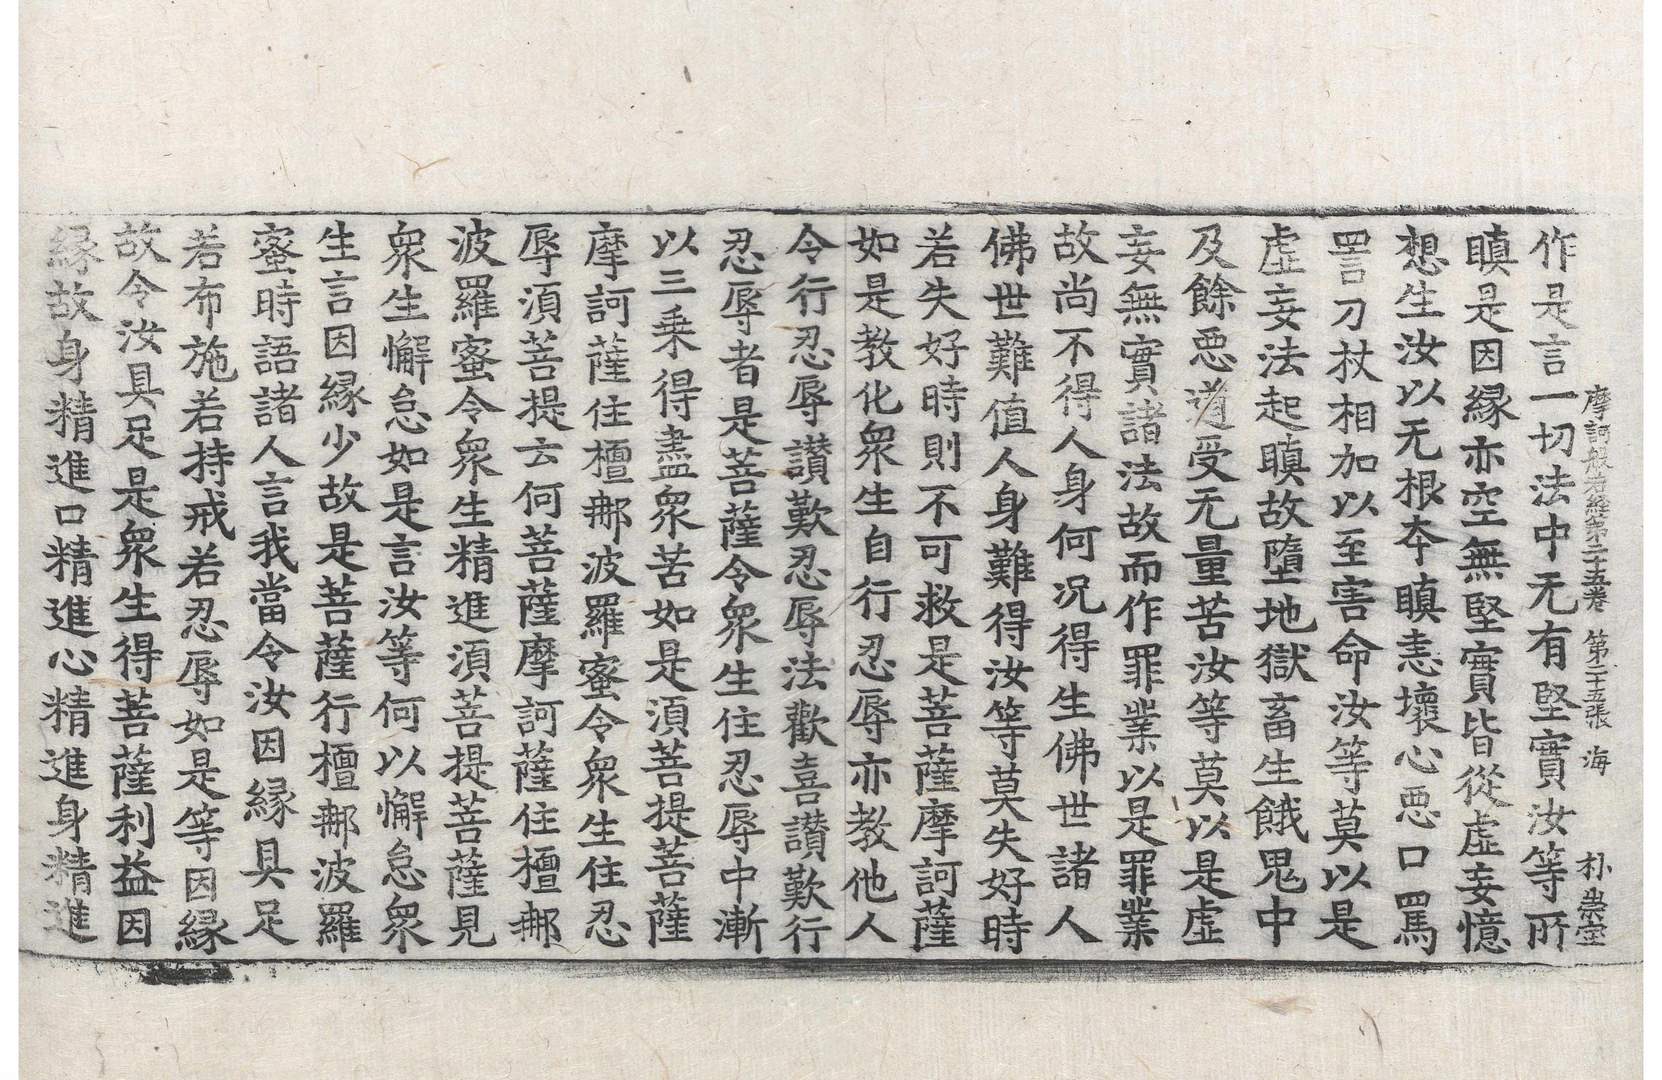 摩訶般若經第二十五卷 第二十五張 海 朴崇
作是言一切法中无有堅實汝等所
瞋是因緣亦空無堅實皆從虛妄憶
想生汝以无根夲瞋恚壞心惡口罵
詈刀杖相加以至害命汝等莫以是
虛妄法起瞋故墮地獄畜生餓鬼中
及餘惡道受无量苦汝等莫以是虛
妄無實諸法故而作罪業以是罪業
故尚不得人身何況得生佛世諸人
佛世難值人身難得汝等莫失好時
若失好時則不可救是菩薩摩訶薩
如是教化衆生自行忍辱亦教他人
令行忍辱讃歎忍辱法歡喜讃歎行
忍辱者是菩薩令衆生住忍辱中漸
以三乘得盡衆苦如是須菩提菩薩
摩訶薩住檀那波羅蜜令衆生住忍
辱須菩提云何菩薩摩訶薩住檀那
波羅蜜令衆生精進須菩提菩薩見
衆生懈怠如是言汝等何以懈怠衆
生言因緣少故是菩薩行檀那波羅
蜜時語諸人言我當令汝因緣具足
若布施若持戒若忍辱如是等因緣
故令汝具足是衆生得菩薩利益因
緣故身精進口精進心精進身精進